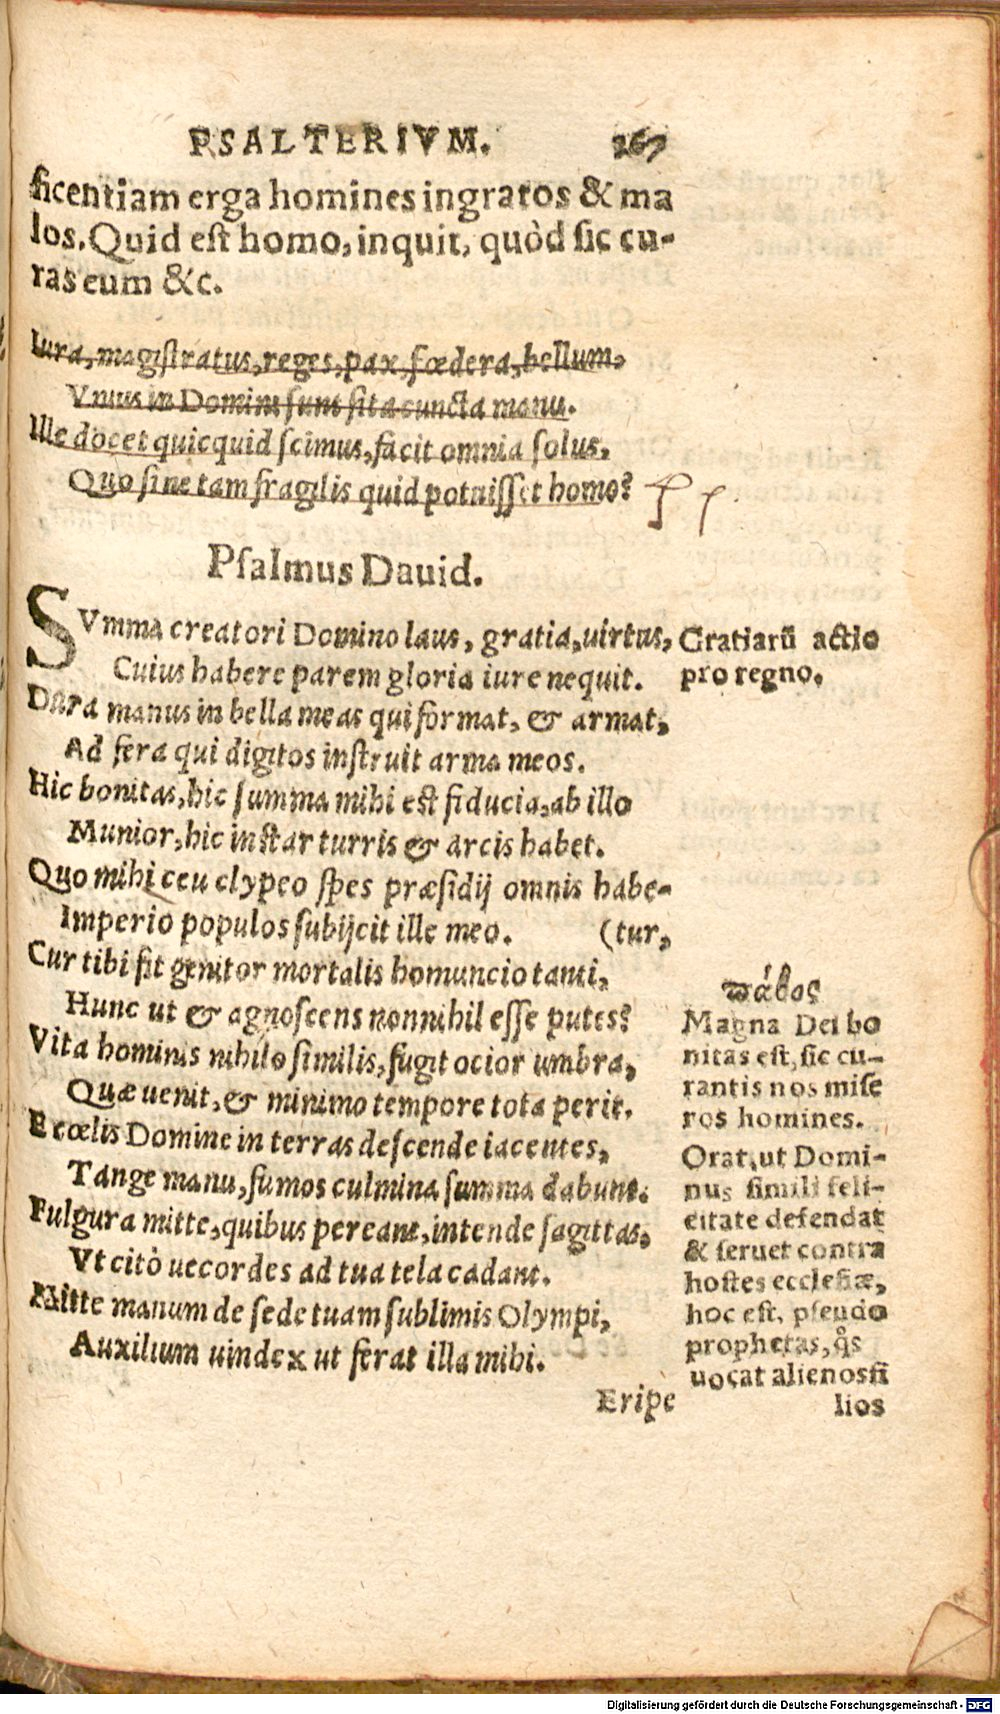 PSALTERIVM. 267
ficentiam erga homines ingratos & ma
los. Quid est homo, inquit, quòd sic cu-
ras eum &c.
Iura, magistratus, reges, pax, fœdera, bellum,
Vnius in Domini sunt sita cuncta manu.
Ille docet quicquid scimus, facit omnia solus,
Quo sine tam fragilis quid potuisset homo?
Psalmus Dauid.
SVmma creatori Domino laus, gratia, uirtus,
Cuius habere parem gloria iure nequit.
Dura manus in bella meas qui format, & armat,
Ad fera qui digitos instruit arma meos.
Hic bonitas, hic summa mihi est fiducia, ab illo
Munior, hic instar turris & arcis habet.
Quo mihi ceu clypeo spes præsidij omnis habe-
Imperio populos subijcit ille meo. (tur,
Cur tibi sit genitor mortalis homuncio tanti,
Hunc ut & agnoscens nonnihil esse putes?
Vita hominis nihilo similis, fugit ocior umbra,
Quæ uenit, & minimo tempore tota perit.
E cœlis Domine in terras descende iacentes,
Tange manu, fumos culmina summa dabunt.
Fulgura mitte, quibus pereant, intende sagittas,
Vt citò uecordes ad tua tela cadant.
Mitte manum de sede tuam sublimis Olympi,
Auxilium uindex ut ferat illa mihi.
Eripe
Gratiarū actio
pro regno.
πάθος
Magna Dei bo
nitas est, sic cu-
rantis nos mise
ros homines.
Orat, ut Domi-
nus simili feli-
citate defendat
& seruet contra
hostes ecclesiæ,
hoc est, pseudo
prophetas, q̃s
uocat alienos fi
lios
Digitalisierung gefördert durch die Deutsche Forschungsgemeinschaft - DFG